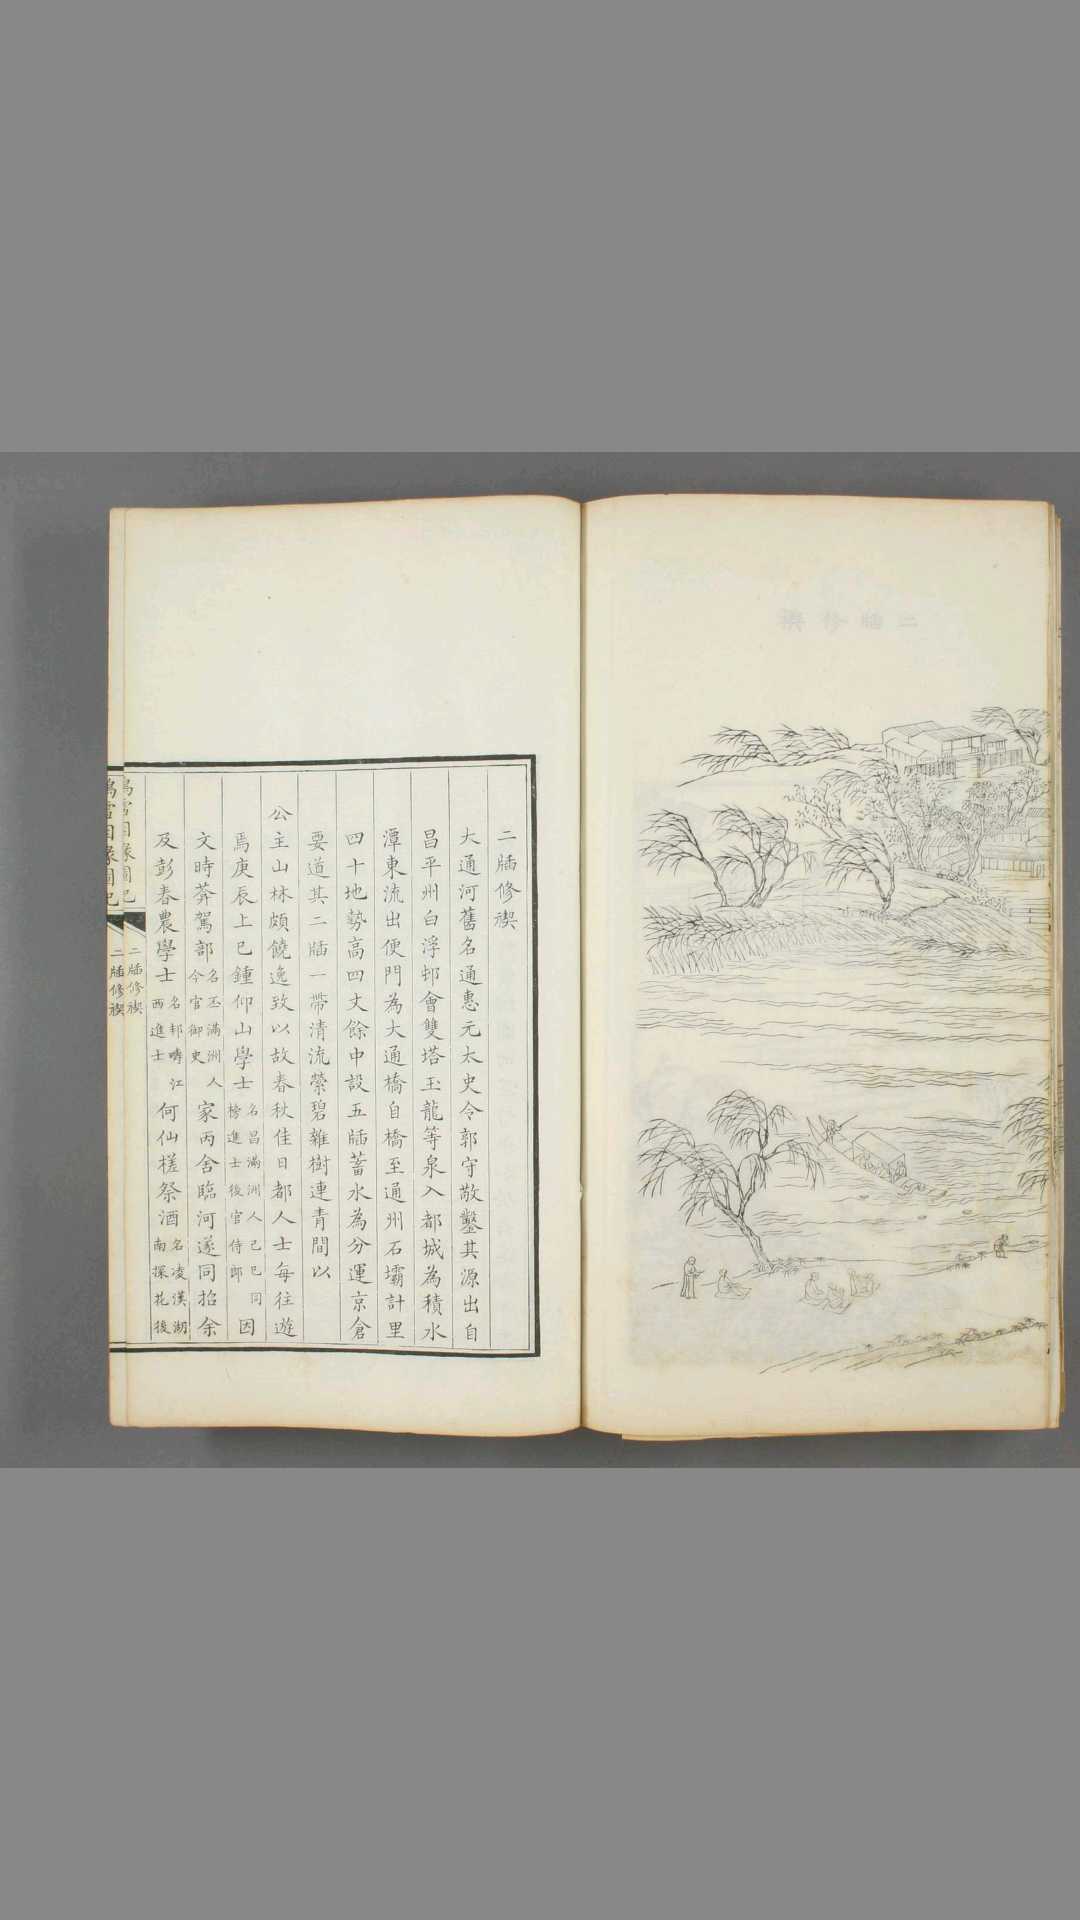 二牐修禊
大通河舊名通惠元太史令郭守敬鑿其源出自
昌平州白浮邨會雙塔玉龍等泉入都城為積水
潭東流出便門為大通橋自橋至通州石壩計里
四十地勢高四丈餘中設五牐蓄水為分運京倉
要道其二牐一帶清流縈碧雜樹連青間以
公主山林頗饒逸致以故春秋佳日都人士每往遊
焉庚辰上巳鍾仰山學士名昌滿洲人己巳同榜進士後官侍郎因
文時莽駕部名丕滿洲人今官御史家丙舍臨河遂同招余
及彭春農學士名邦疇江西進士何仙槎祭酒名凌漢湖南探花後
鴻雪因緣圖記
二牐修禊
鴻雪因緣圖記
二牐修禊